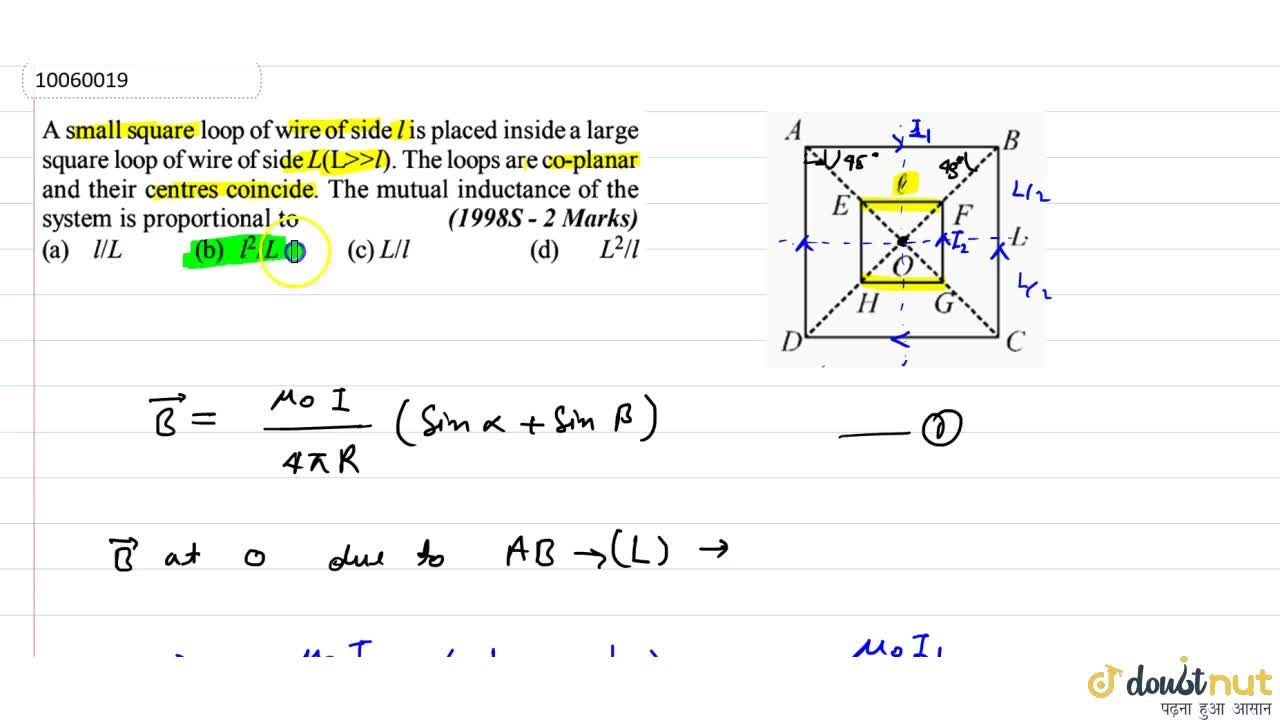 10060019
A small square loop of wire of side l is placed inside a large
square loop of wire of side L(L>>l). The loops are co-planar
and their centres coincide. The mutual inductance of the
system is proportional to (1998S - 2 Marks)
(a) l/L (b) l²/L (c) L/l (d) L²/l
A I₁ B
45° 45°
l L/2
E F
I₂ L
O
H G L/2
D C
B⃗ = μ₀ I / 4πR (Sin α + Sin β) —
B⃗ at O due to AB → (L) →
μ₀ I μ₀ I₁
doubtnut
पढ़ना हुआ आसान